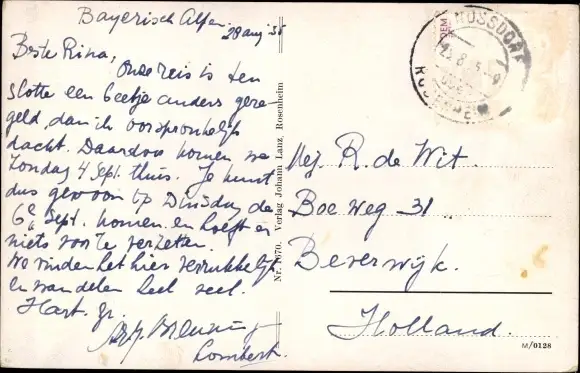 Bayerisch Alpen.
28 aug '55
Beste Rina,
Onze reis is ten
slotte een beetje anders gere-
geld, dan ik oorspronkelijk
dacht. Daardoor komen we
Zondag 4 Sept. thuis. Je kunt
dus gewoon op Dinsdag de
6e Sept. komen en hoeft er
niets voor te verzetten.
We vinden het hier verrukkelijk
en wandelen heel veel.
Hart. gr.
Lombert.
Nr. 7670. Verlag Johann Lanz, Rosenheim
NUSSDORF
ROSENHEIM
Mej. R. de Wit.
Boeweg 31.
Beverwijk.
Holland.
M/0128